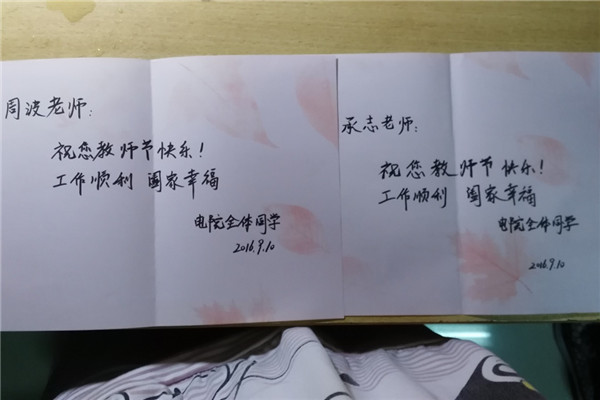 周波老师：
祝您教师节快乐！
工作顺利 阖家幸福
电院全体同学
2016.9.10
承志老师：
祝您教师节快乐！
工作顺利 阖家幸福
电院全体同学
2016.9.10